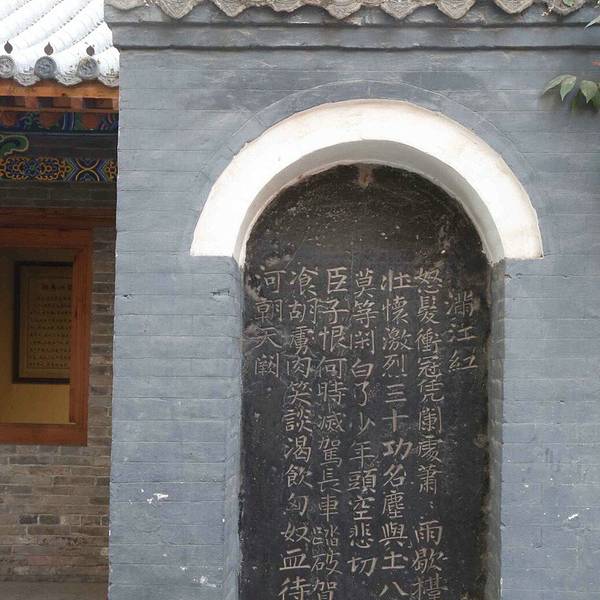 滿江紅
怒髮衝冠凭闌處蕭：雨歇擡
壯懷激烈三十功名塵與土八
莫等闲白了少年頭空悲切
臣子恨何時滅駕長車踏破賀
飡胡虜肉笑談渴飲匈奴血待
河朝天闕